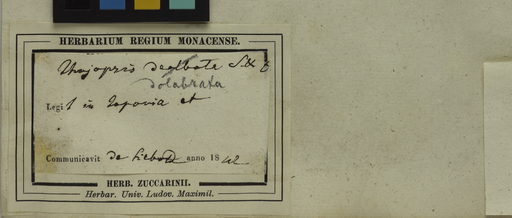 HERBARIUM REGIUM MONACENSE.
Thujopsis dealbata S. & Z
dolabrata
Legit in Japonia et
Communicavit de Siebold anno 1842
HERB. ZUCCARINII.
Herbar. Univ. Ludov. Maximil.